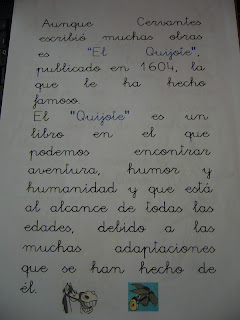 Aunque Cervantes
escribió muchas obras
es "El Quijote",
publicado en 1604, la
que le ha hecho
famoso.
El "Quijote" es un
libro en el que
podemos encontrar
aventura, humor y
humanidad y que está
al alcance de todas las
edades, debido a las
muchas adaptaciones
que se han hecho de
él.